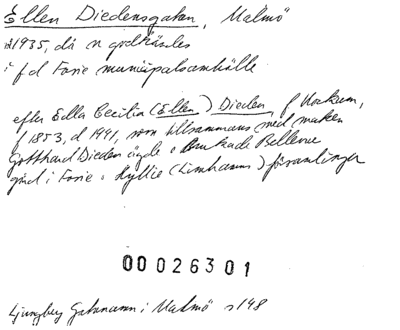 Ellen Diedensgatan, Malmö
1935, då n godkändes
i f d Fosie municipalsamhälle
efter Edla Cecilia (Ellen) Dieden, f Kockum,
f 1853, d 1941, som tillsammans med maken
Gotthard Dieden ägde o brukade Bellevue
gård i Fosie o Hyllie (Limhamns) församlingar
00026301
Ljungberg Gatunamn i Malmö s 148